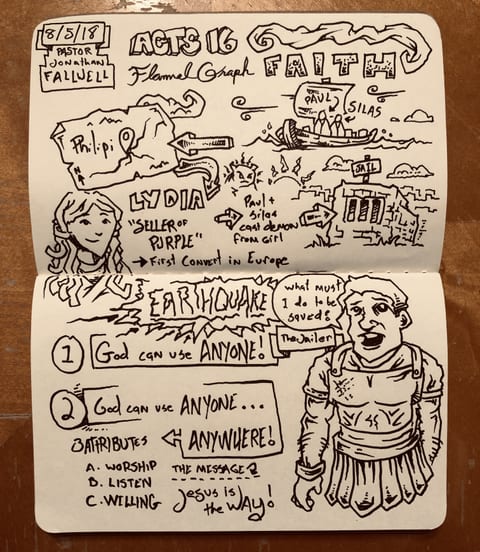 8/5/18
PASTOR
Jonathan
FALLWELL
ACTS 16
Flannel Graph
FAITH
PAUL
SILAS
Philipi
N
JAIL
LYDIA
"SELLER OF
PURPLE"
→ First Convert in Europe
Paul +
Silas
cast demon
from girl
EARTHQUAKE
what must
I do to be
saved?
The Jailer
1 God can use ANYONE!
2 God can use ANYONE...
ANYWHERE!
3 ATRIBUTES
A. WORSHIP
B. LISTEN
C. WILLING
THE MESSAGE?
Jesus is
the WAY!